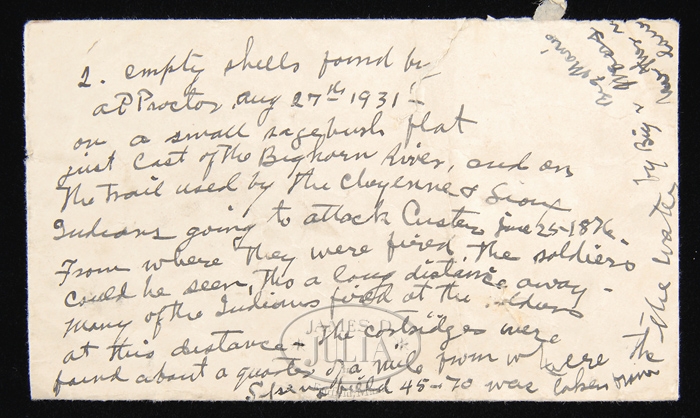 2. empty shells found by
A P Proctor, Aug 27th 1931-
on a small sagebush flat
just East of the Bighorn River, and on
the trail used by the Cheyenne & Sioux
Indians going to attack Custer June 25-1876-
From where they were fired the soldiers
could be seen, tho a long distance away-
Many of the Indians fired at the soldiers
at this distance- The cartridges were
found about a quarter of a mile from where the
Springfield 45-70 was taken from
the water by Big
JAMES D.
JULIA